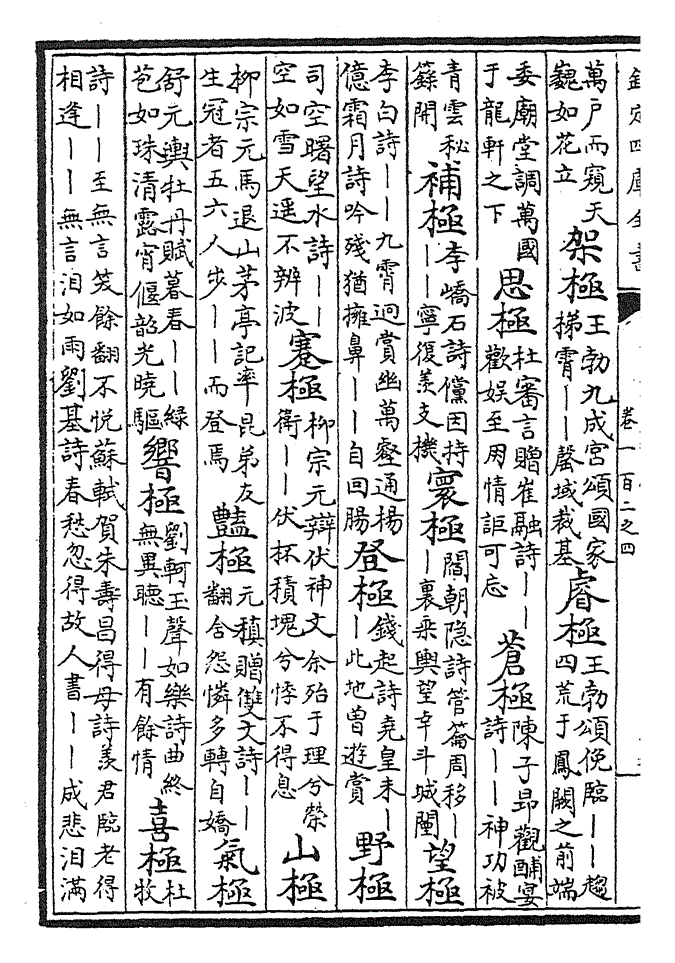 欽定四庫全書
卷一百二之四
萬戶而窺天
巍如花立
架極
王勃九成宮頌國家
梯霄｜｜聲域裁基
睿極
王勃頌俛臨｜｜趨
四荒于鳳闕之前端
委廟堂調萬國
于龍軒之下
思極
杜審言贈崔融詩｜｜
歡娛至朋情詎可忘
蒼極
陳子昂觀酺宴
詩｜｜神功被
青雲秘
籙開
補極
李嶠石詩儻因持
｜｜寧復羡支機
寰極
閻朝隐詩管籥周移｜
｜裏乘輿望幸斗城闉
望極
李白詩｜｜九霄迥賞幽萬壑通楊
億霜月詩吟殘猶擁鼻｜｜自回腸
登極
錢起詩堯皇未｜
｜此地曾遊賞
野極
司空曙望水詩｜｜
空如雪天遥不辨波
蹇極
柳宗元辯伏神文余殆于理兮榮
衛｜｜伏杯積塊兮悸不得息
山極
柳宗元馬退山茅亭記率昆弟友
生冠者五六人步｜｜而登焉
豔極
元稹贈雙文詩｜｜
翻含怨憐多轉自嬌
氣極
舒元輿牡丹賦暮春｜｜綠
苞如珠清露宵偃韶光曉驅
響極
劉軻玉聲如樂詩曲終
無異聽｜｜有餘情
喜極
杜
牧
詩｜｜至無言笑餘翻不悅蘇軾賀朱壽昌得母詩羡君臨老得
相逢｜｜無言泪如雨劉基詩春愁忽得故人書｜｜成悲泪滿